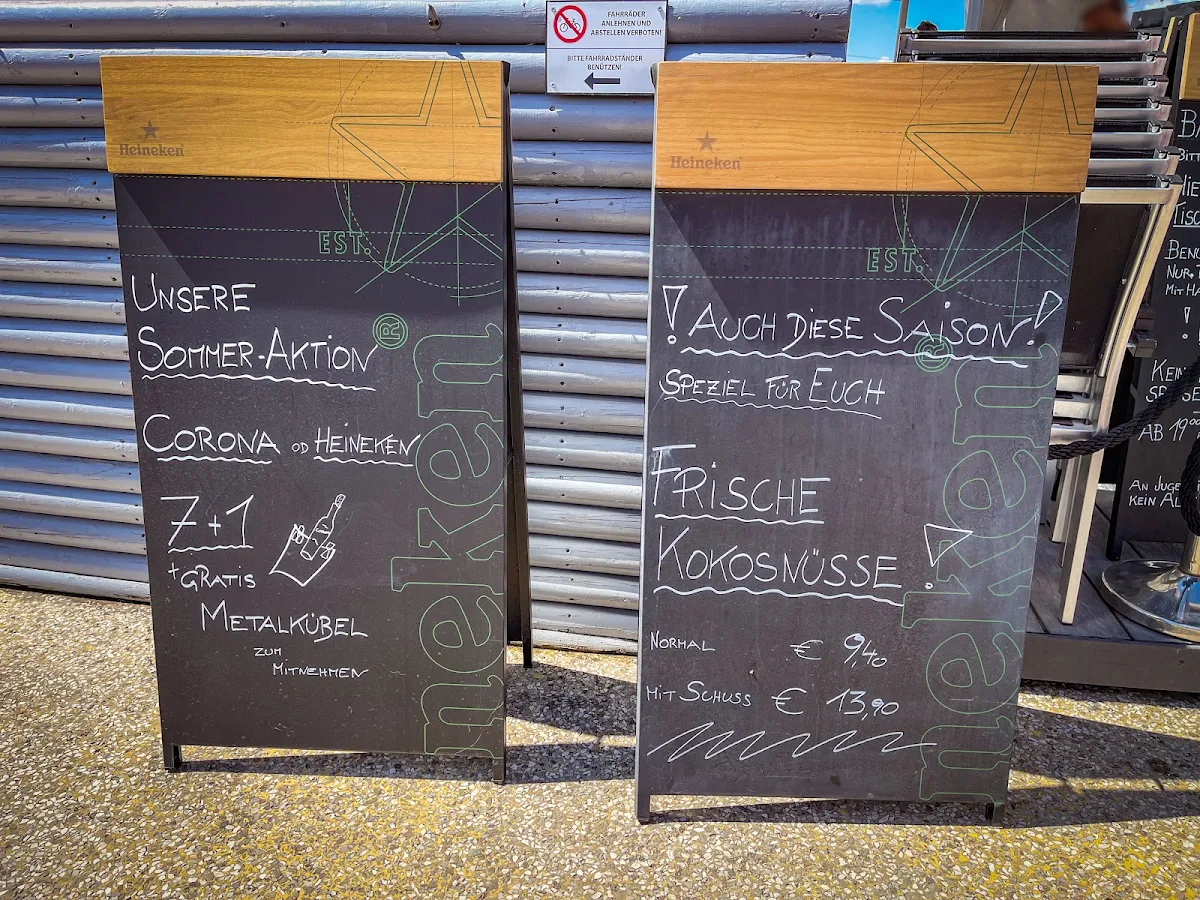 FAHRRÄDER
ANLEHNEN UND
ABSTELLEN VERBOTEN!
BITTE FAHRRADSTÄNDER
BENÜTZEN!
Heineken
EST.
UNSERE
SOMMER-AKTION
CORONA OD HEINEKEN
7+1
+GRATIS
METALKÜBEL
ZUM
MITNEHMEN
neken®
Heineken
EST.
!AUCH DIESE SAISON!
SPEZIEL FÜR EUCH
FRISCHE
KOKOSNÜSSE!
NORMAL € 9,40
MIT SCHUSS € 13,90
neken®
BITT
BENÜ
NUR
MIT HA
!
KEIN
AB 19⁰⁰
AN JUGE
KEIN AL